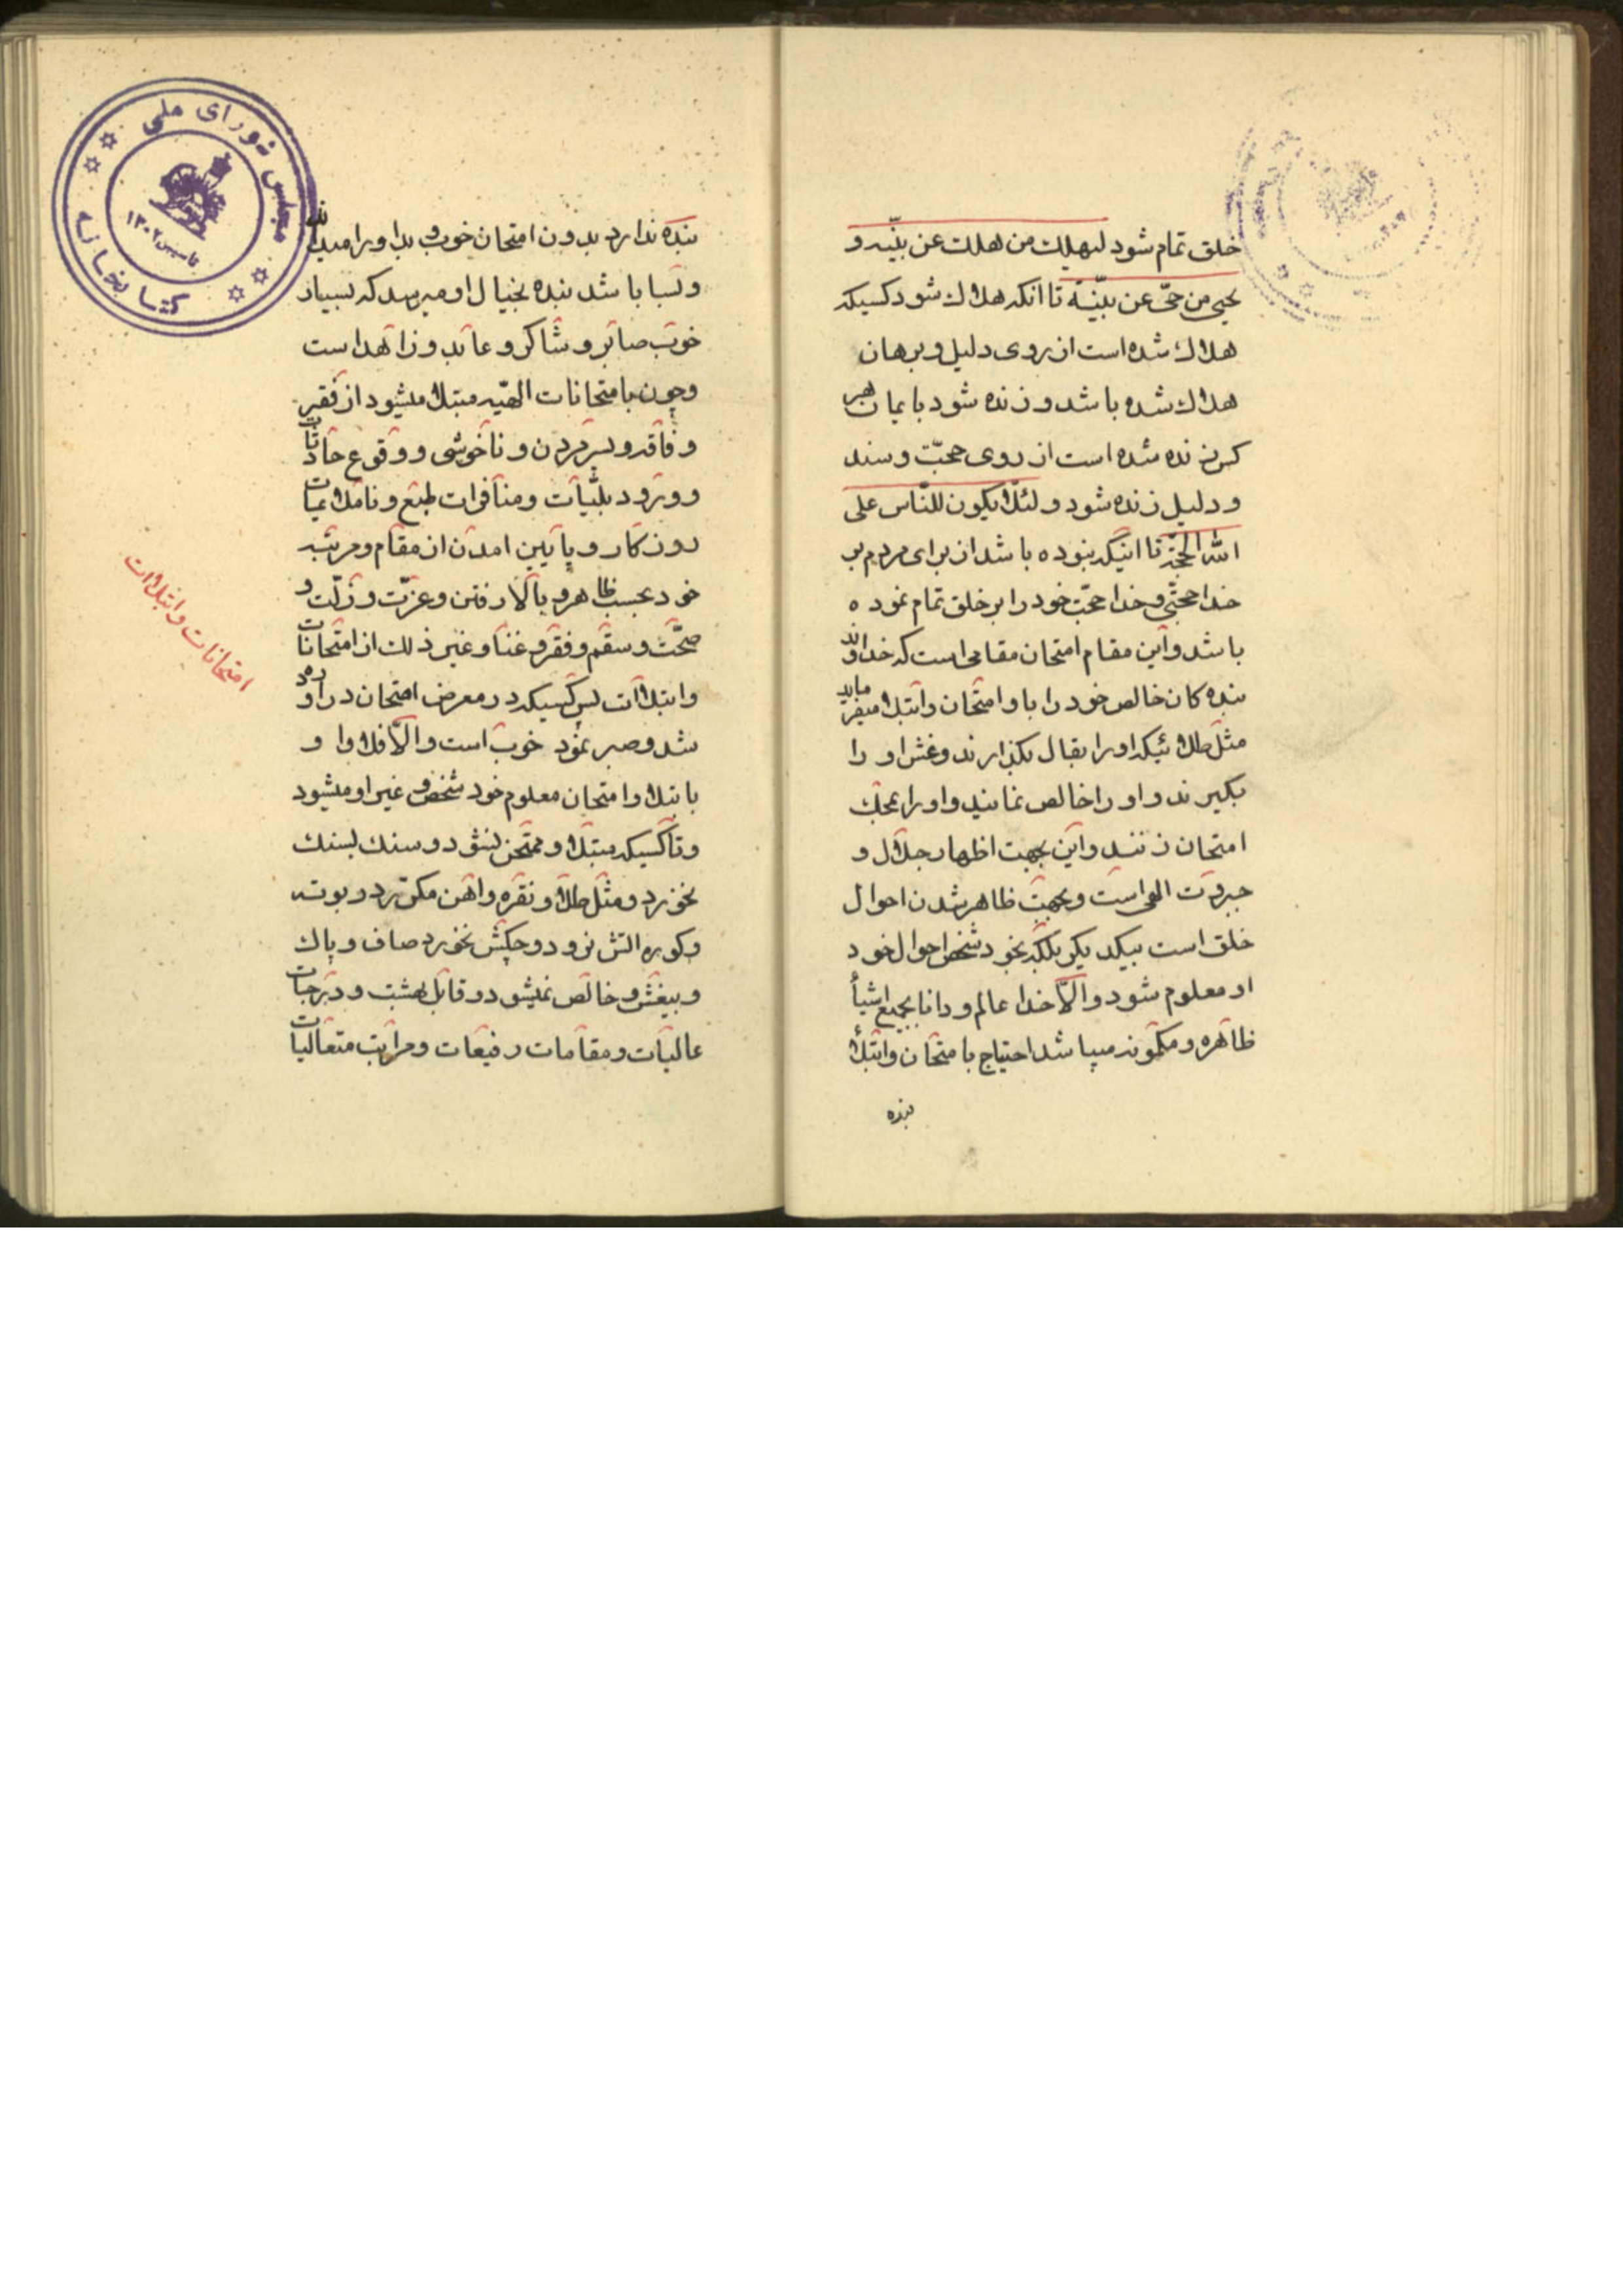 خلق تمام شود لیهلك من هلك عن بیّنه و
یحیی من حیّ عن بیّنة تا انکه هلاك شود کسیکه
هلاك شده است از روی دلیل و برهان
هلاك شده باشد و زنده شود بایمان هر
کس زنده شده است از روی حجّت و سند
و دلیل زنده شود و لئلّا یکون للنّاس علی
الله الحجّة تا اینکه نبوده باشد از برای مردم بر
خدا حجّتی و خدا حجّت خود را بر خلق تمام نموده
باشد و این مقام امتحان مقامی است که خداوند
بنده کان خالص خود را باو امتحان و ابتلا میفرماید
مثل طلائیکه او را بقال بکذارند و غش او را
بکیرند و او را خالص نمایند و او را بمحك
امتحان زنند و این بجهت اظهار جلال و
جبروت الهی است و بجهت ظاهر شدن احوال
خلق است بیکدیکر بلکه بخود شخص احوال خود
او معلوم شود و الّا خدا عالم و دانا بجمیع اشیاء
ظاهره و مکمونه میباشد احتیاج بامتحان و ابتلاء
بنده
بنده ندارد بدون امتحان خوب و بد او را میداند
و بسا باشد بنده بخیال او میرسد که بسیار
خوب صابر و شاکر و عابد و زاهد است
و چون بامتحانات الهیّه مبتلا میشود از فقر
و فاقه و پسر مردن و ناخوشی و وقوع حادثات
و ورود بلیّات و منافرات طبع و ناملایمات
روزکار و پایین امدن از مقام و مرتبه
خود بحسب ظاهر و بالا رفتن و عزّت و ذلّت و
صحّت و سقم و فقر و غنا و غیر ذلك از امتحانات
و ابتلاات پس کسیکه در معرض امتحان در اورده
شد و صبر نمود خوب است و الّا فلا و ا و
بابتلا و امتحان معلوم خود شخص و غیر او میشود
و تا کسیکه مبتلا و ممتحن نشود و سنك بسنك
نخورد و مثل طلا و نقره و اهن مکرّر در بوته
و کوره اتش نرود و چکش نخورد صاف و پاك
و بیغش و خالص نمیشود و قابل بهشت و درجات
عالیات و مقامات رفیعات و مراتب متعالیات
امتحانات و ابتلاات
مجلس شورای ملی
کتابخانه
تاسیس ۱۳۰۲